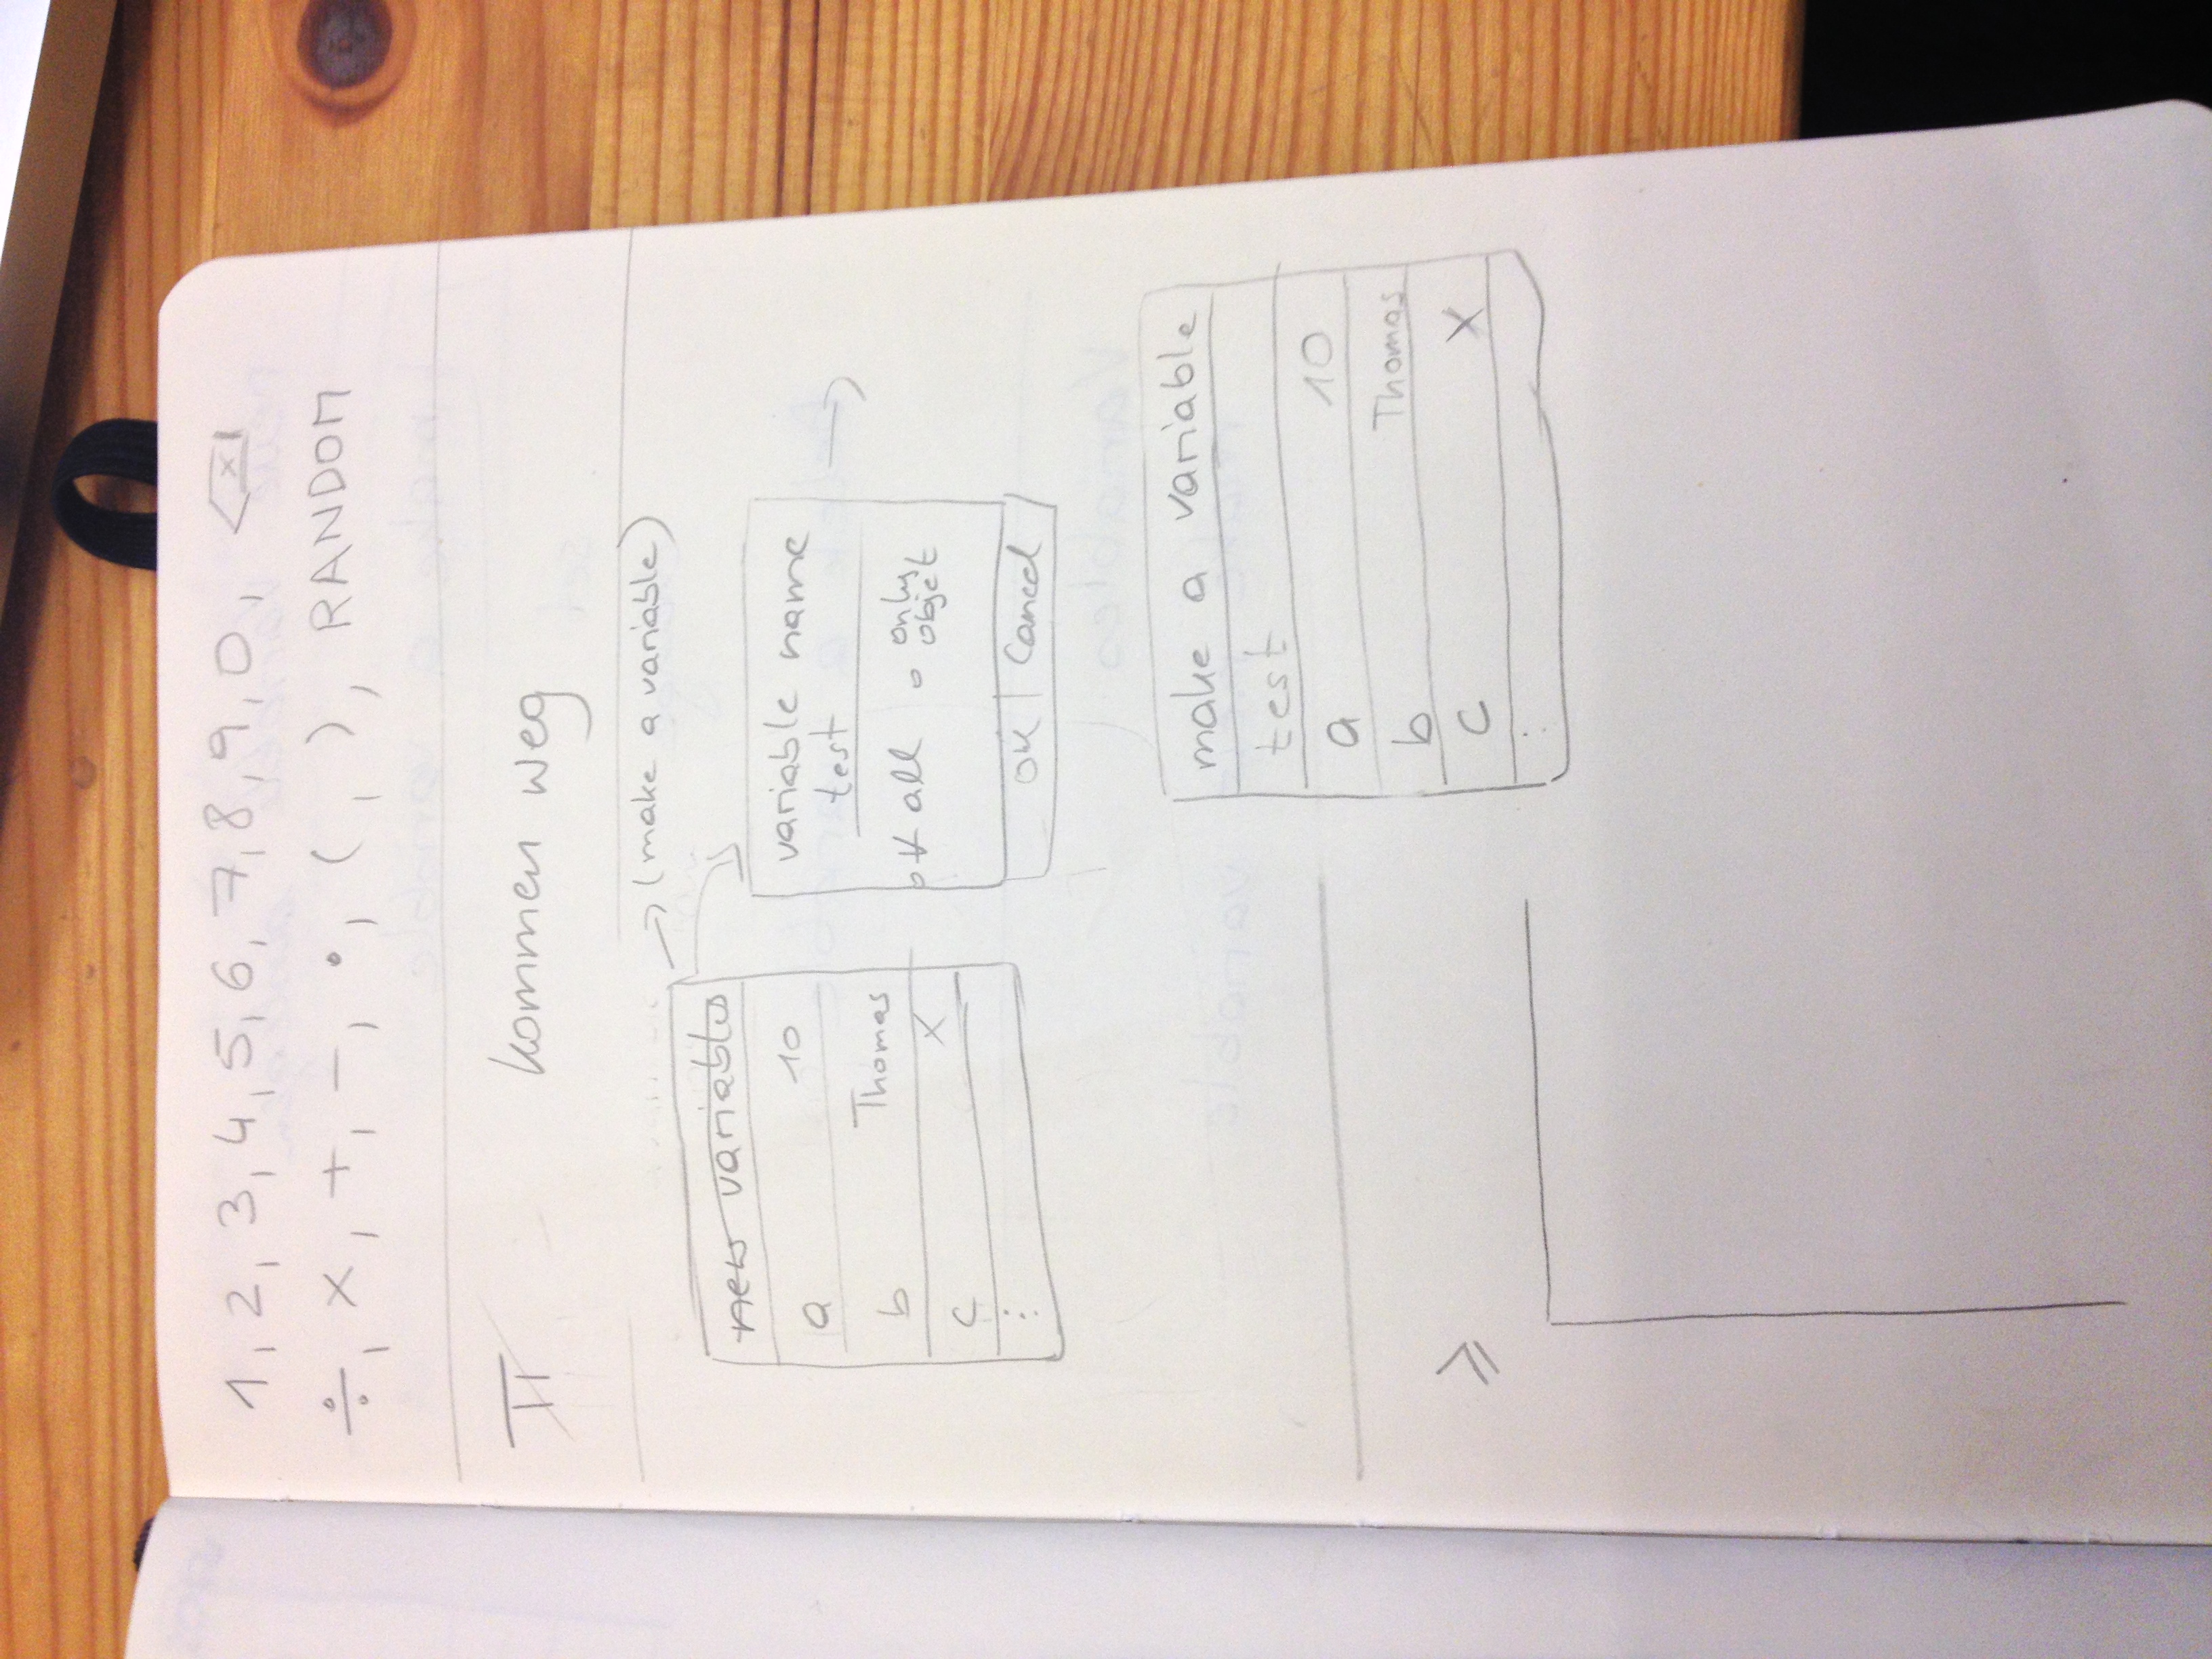 1, 2, 3, 4, 5, 6, 7, 8, 9, 0, ⌫
÷, ×, +, −, •, (, ), RANDOM
π kommen weg
→ (make a variable)
new variables
a 10
b Thomas
c x
⋮
variable name
test
all only
objet
OK | Cancel
make a variable
test
a 10
b Thomas
c x
⋮
⩾